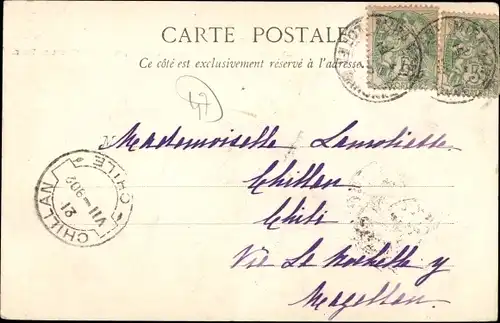 CARTE POSTALE
Ce côté est exclusivement réservé à l'adresse.
Mademoiselle Lamoliette
Chillan
Chili
Vie La Rochelle y
Magellan.
CHILLAN CHILE
21 VII 903